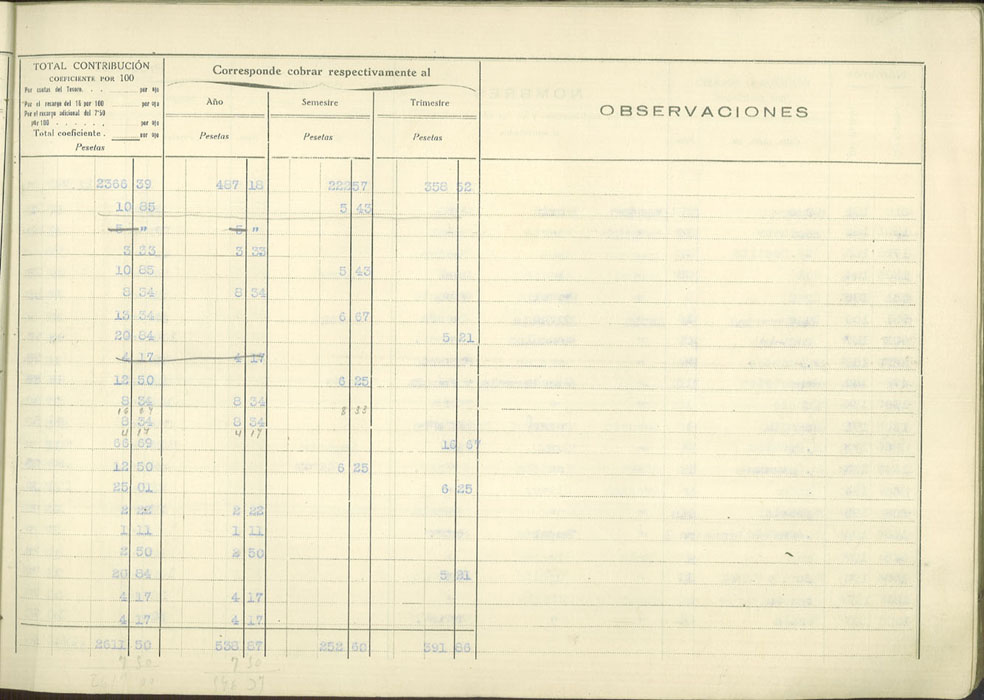 TOTAL CONTRIBUCIÓN
COEFICIENTE POR 100
Por cuotas del Tesoro. . . por ojo
Por el recargo del 16 por 100 por ojo
Por el recargo adicional del 7'50
por 100 . . . . . . por ojo
Total coeficiente . por ojo
Pesetas
Corresponde cobrar respectivamente al
Año Semestre Trimestre
Pesetas Pesetas Pesetas
OBSERVACIONES
2366 39 487 18 222 57 358 52
10 85 5 43
5 " 5 "
3 33 3 33
10 85 5 43
8 34 8 34
13 34 6 67
20 84 5 21
4 17 4 17
12 50 6 25
8 34 8 34
8 33
8 34 8 34
4 17 4 17
66 69 16 67
12 50 6 25
25 01 6 25
2 22 2 22
1 11 1 11
2 50 2 50
20 84 5 21
4 17 4 17
4 17 4 17
2611 50 538 87 252 60 391 86
7 50 7 50